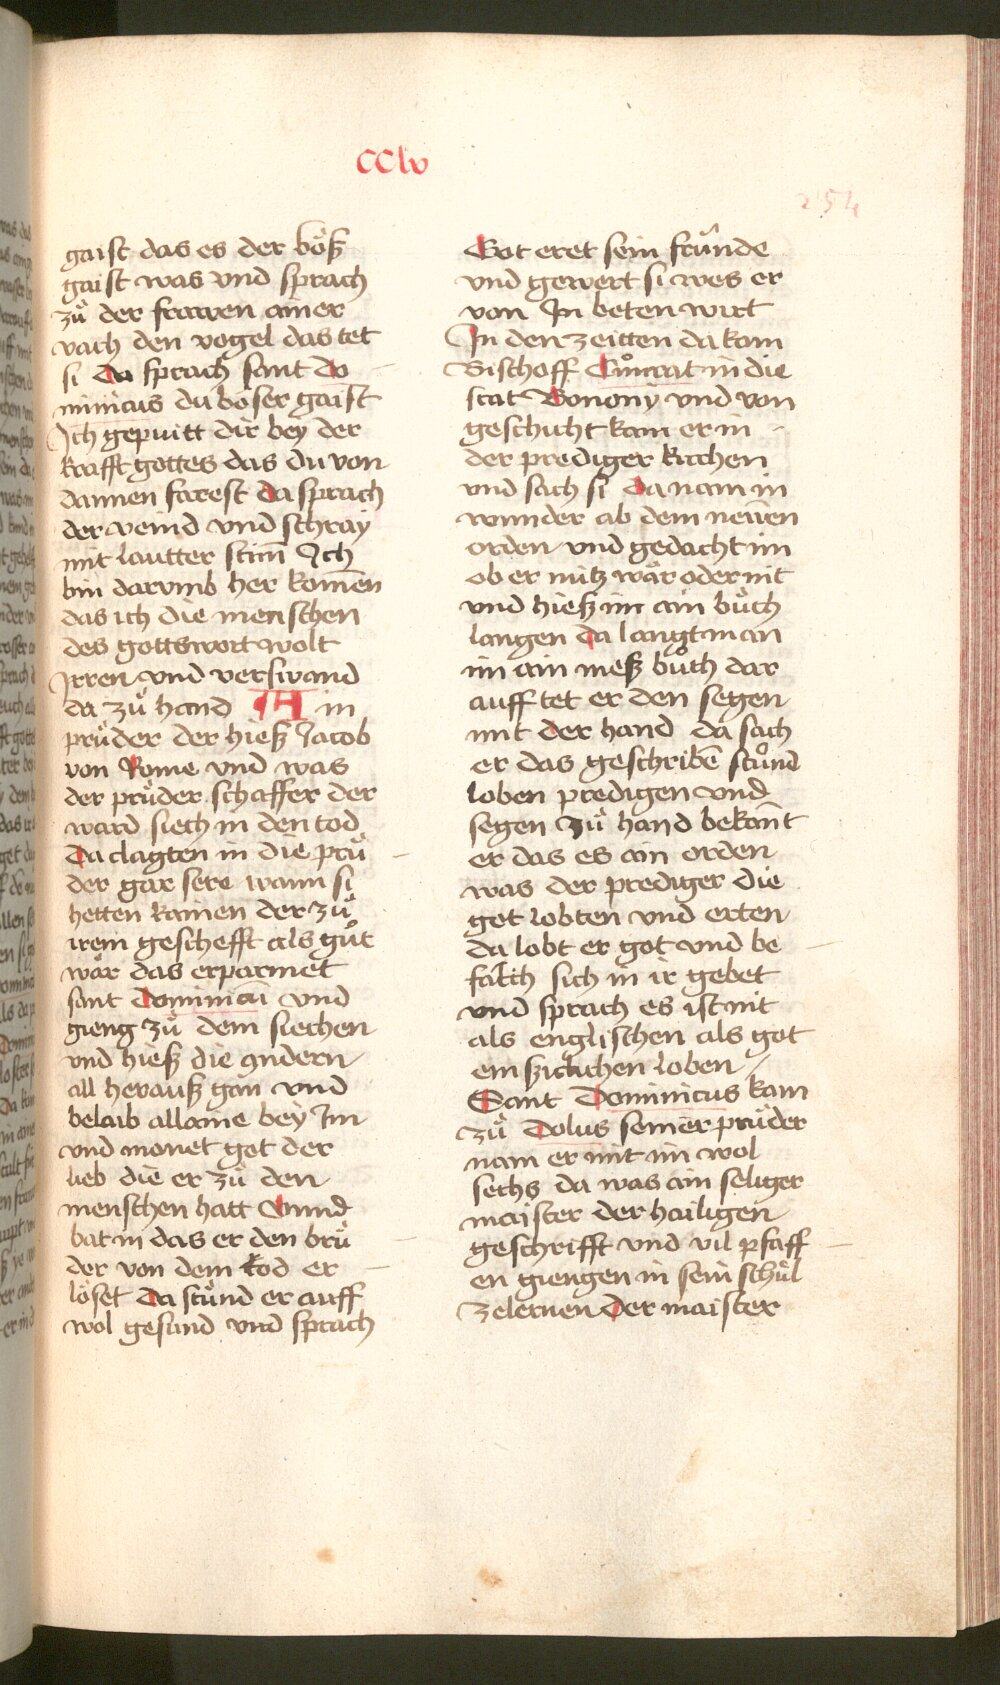 CClv
254
gaist das es der böß
gaist was vnd sprach
zů der frawen ainer
vach den vogel das tet
si Da sprach sant Do
minicus du böser gaist
Ich gepuitt dir bey der
krafft gottes das du von
dannen farest da sprach
der veind vnd schray
mit lautter stim̄ Ich
bin darvmb her kom̄en
das ich die menschen
des gottswort wolt
Irren vnd verswand
da zů hand Ain
průder der hieß Jacob
von Rome vnd was
der průder schaffer der
ward siech in den tod
Da clagten in die prů
der gar sere wann si
hetten kainen der zů
irem geschefft als gůt
wär das erparmet
sant Dominicū vnd
gieng zů dem siechen
vnd hieß die andern
all herauß gan vnd
belaib allaine bey Im
vnd monet got der
lieb die er zů den
menschen hatt Vnnd
bat in das er den brů
der von dem tod er
löset Da stůnd er auff
wol gesund vnd sprach
Got eret sein frůnde
vnd gewert si wes er
von In beten wirt
In den zeitten da kam
Bischoff Cůnrat in die
stat Bonony vnd von
geschicht kam er in
der prediger kirchen
vnd sach si Da nam in
wunder ab dem neẅen
orden vnd gedacht im
ob er nütz wär oder nit
vnd hieß im ain bůch
langen da langt man
im ain meß bůch dar
auff tet er den segen
mit der hand da sach
er das geschribē stůnd
loben predigen vnd
segen zů hand bekānt
er das es ain orden
was der prediger die
got lobten vnd erten
da lobt er got vnd be
falch sich in ir gebet
vnd sprach es ist nit
als englischen als got
emsziclichen loben
Sant Dominicus kam
zů Dolus seiner průder
nam er mit im wol
sechs da was ain seliger
maister der hailigen
geschrifft vnd vil pfaff
en giengen in sein schůl
zelernen Der maister